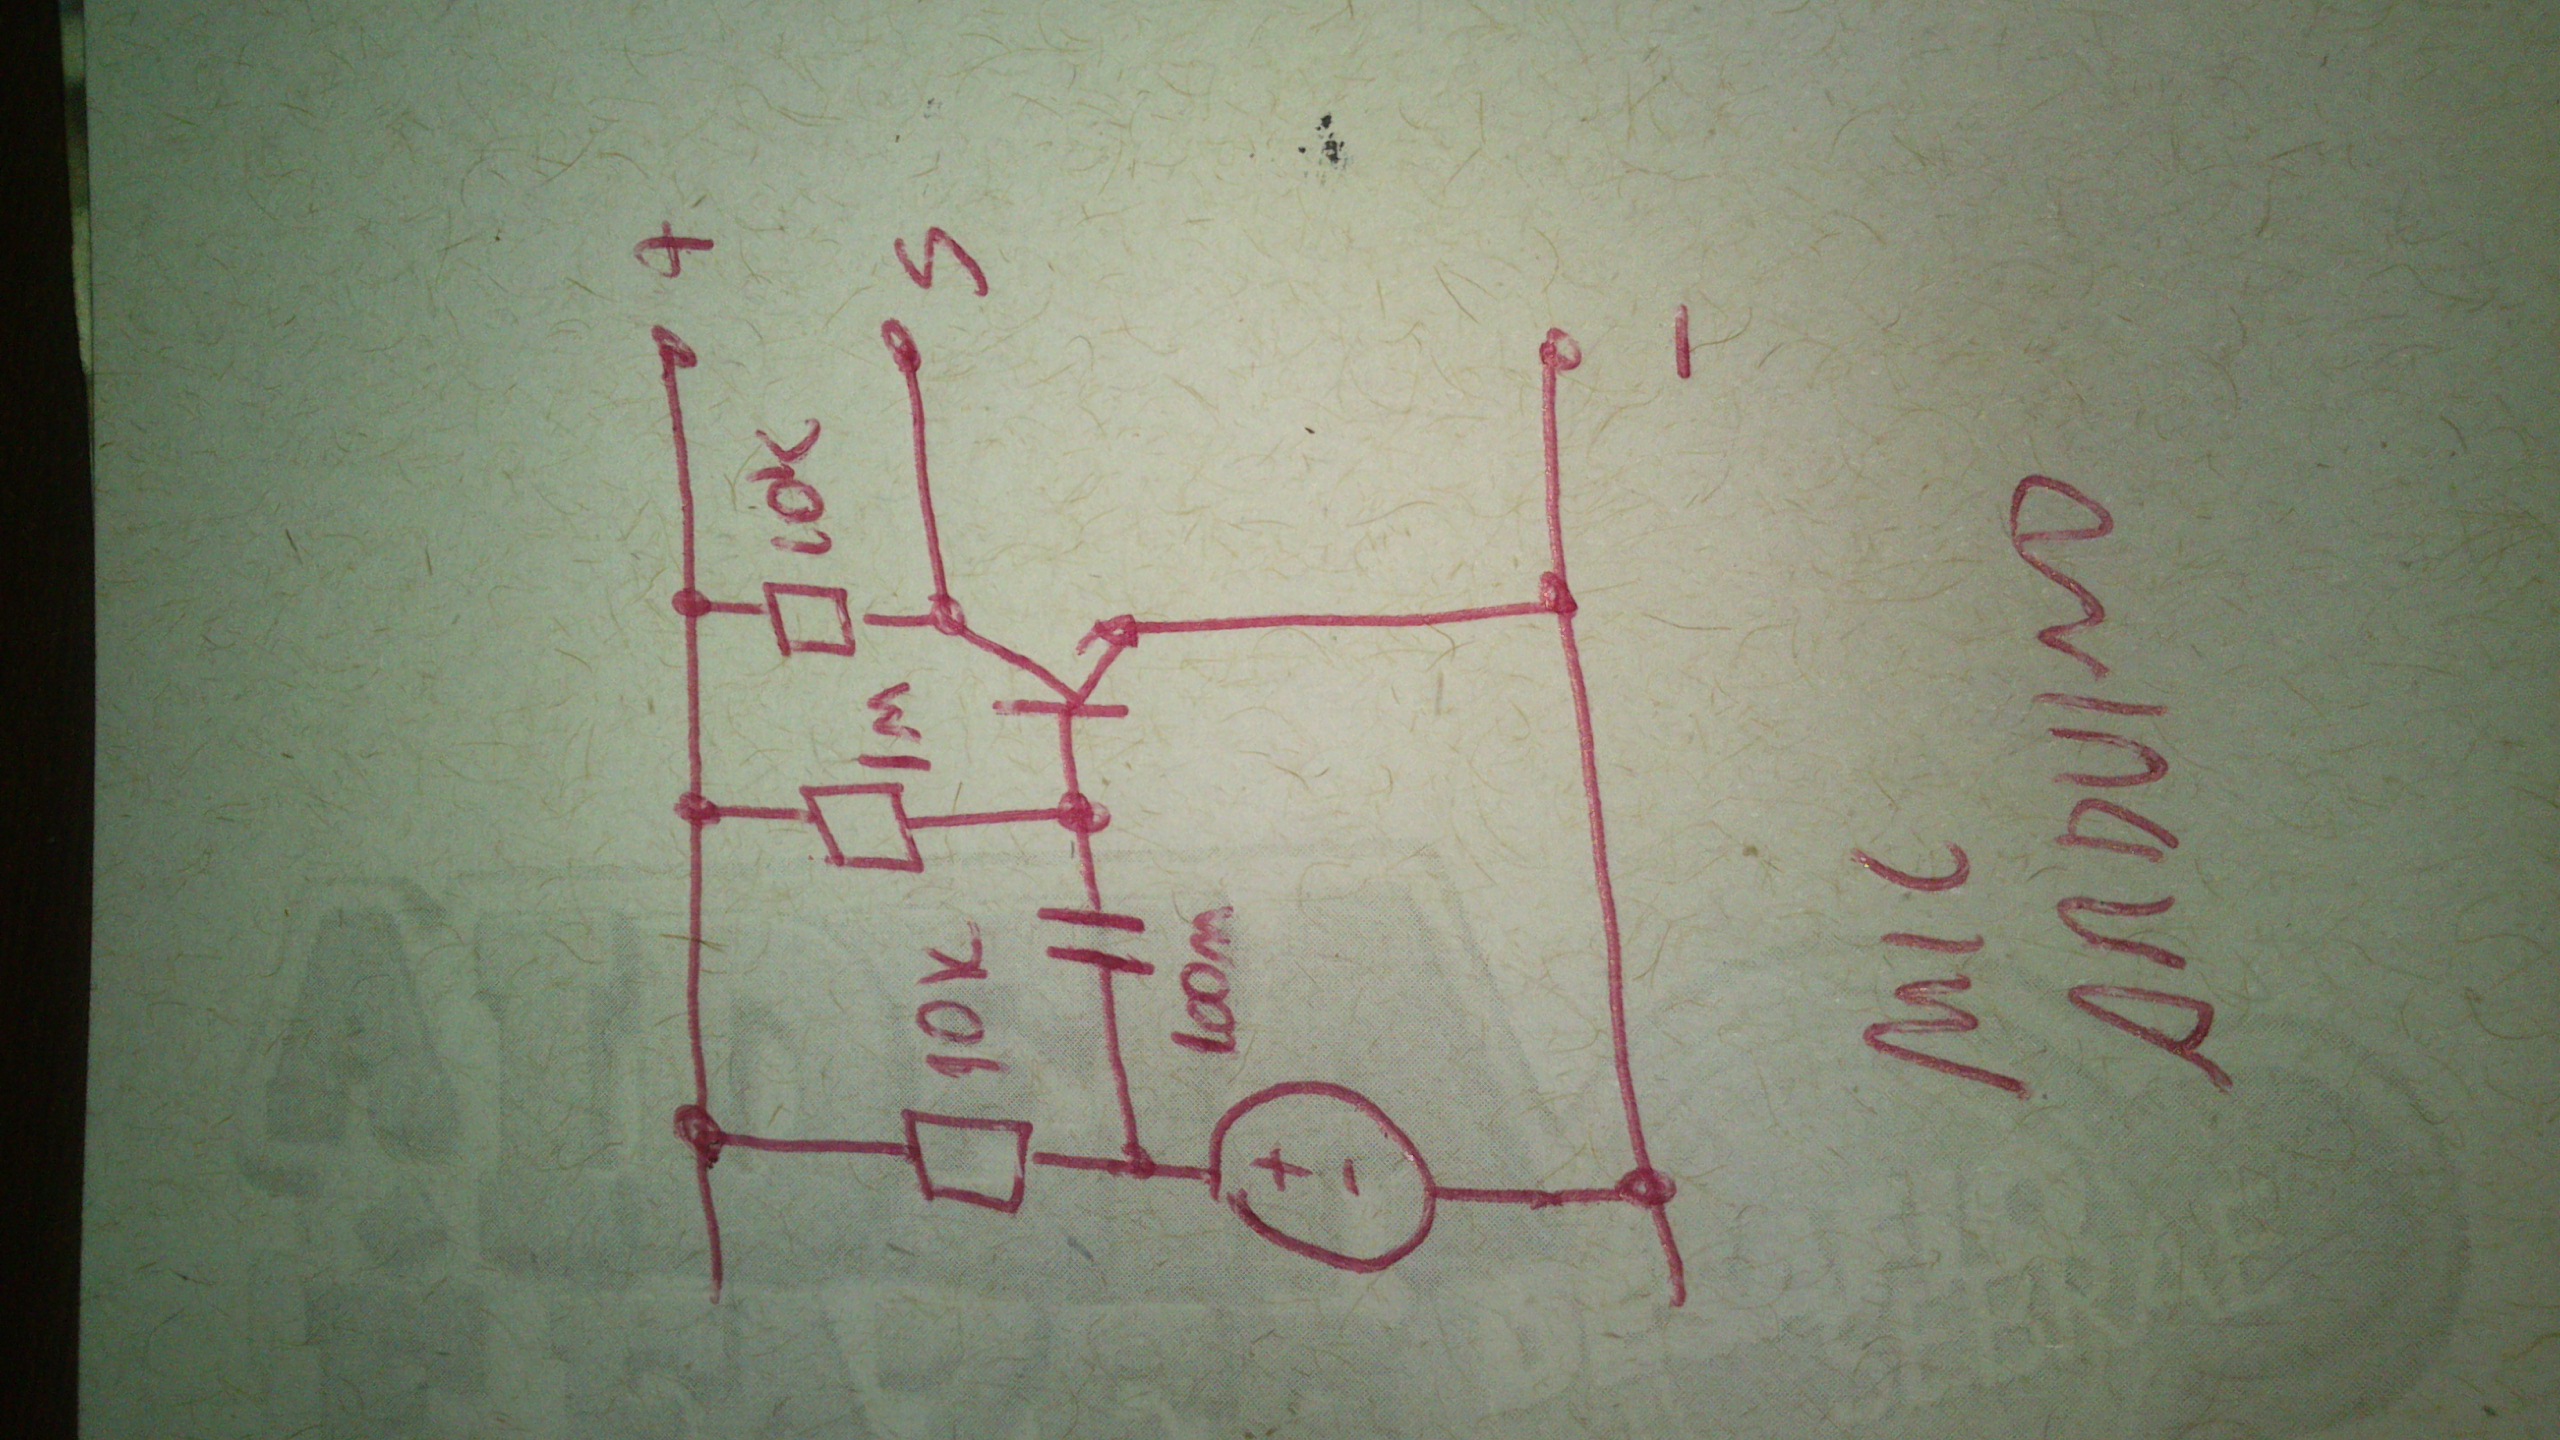 +
10K
1M
10K
S
100m
+
-
-
MIC
ARDUINO